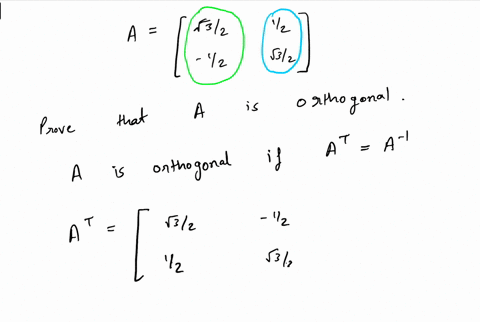 A = [ √3/2 1/2
-1/2 √3/2 ]
Prove that A is orthogonal.
A is orthogonal if Aᵀ = A⁻¹
Aᵀ = [ √3/2 -1/2
1/2 √3/2